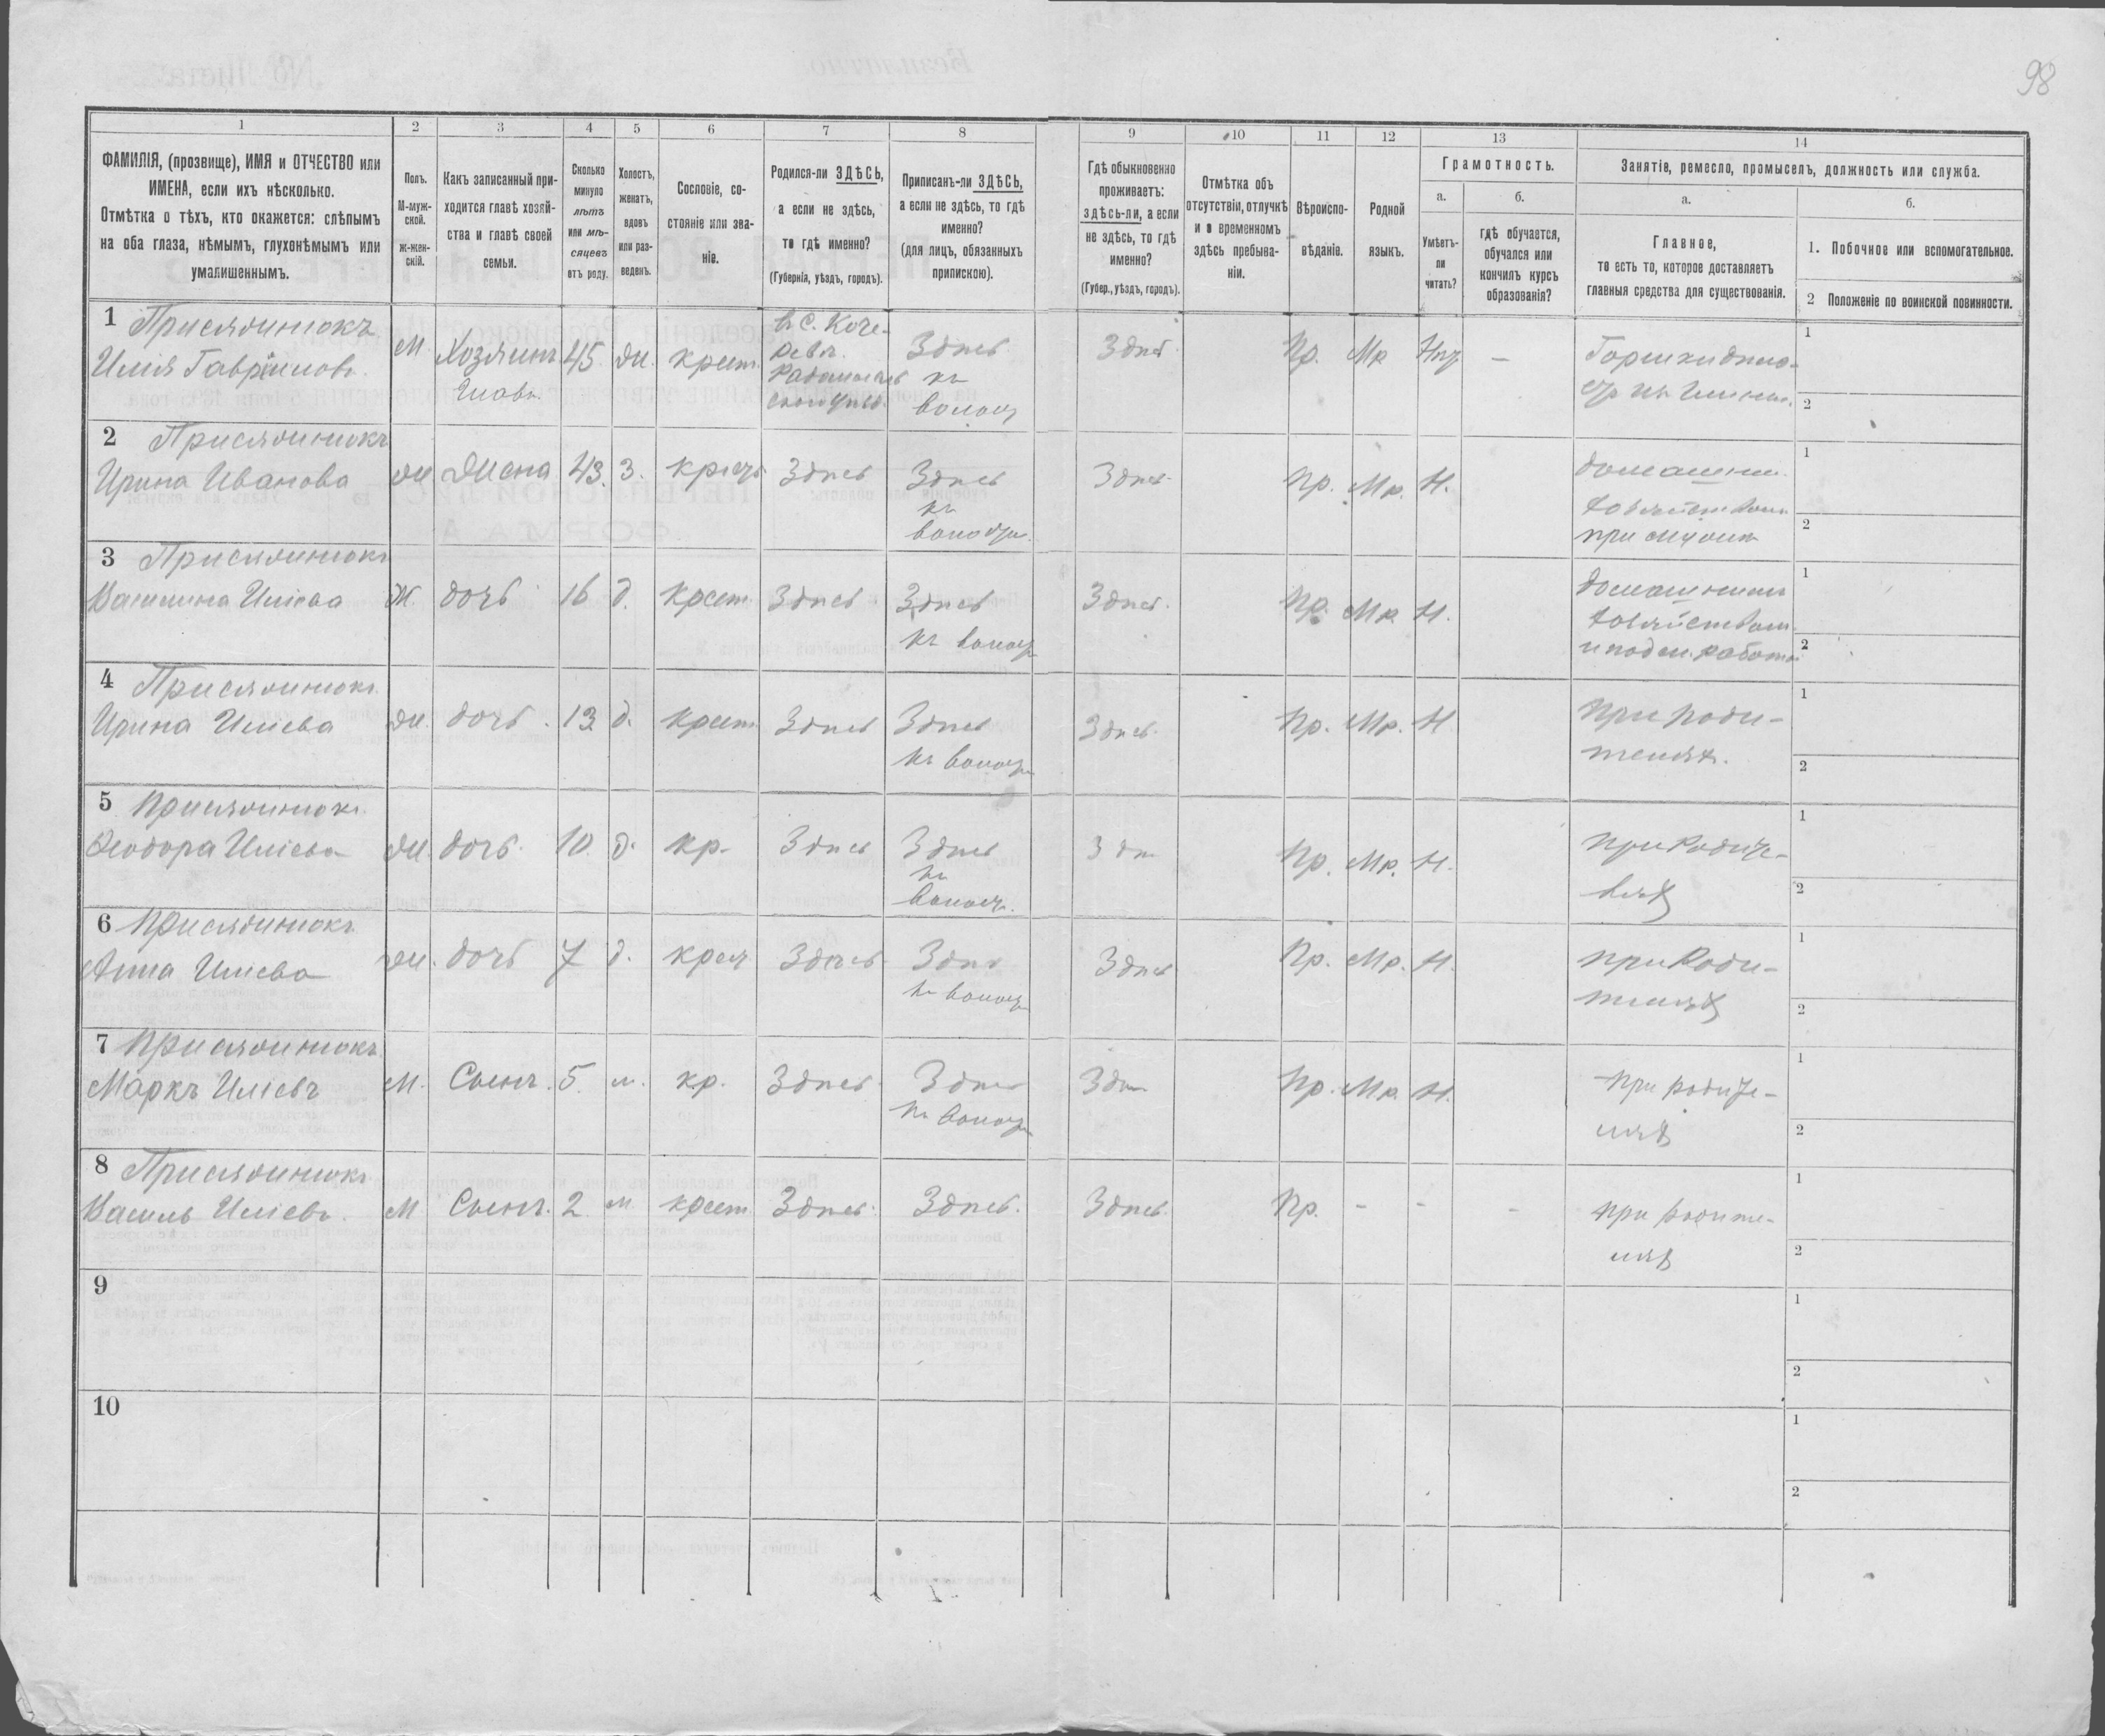 98
1
2
3
4
5
6
7
8
9
10
11
12
13
14
ФАМИЛІЯ, (прозвище), ИМЯ и ОТЧЕСТВО или
ИМЕНА, если ихъ нѣсколько.
Отмѣтка о тѣхъ, кто окажется: слѣпымъ
на оба глаза, нѣмымъ, глухонѣмымъ или
умалишеннымъ.
Полъ.
М-муж-
ской.
Ж-жен-
скій.
Какъ записанный при-
ходится главѣ хозяй-
ства и главѣ своей
семьи.
Сколько
минуло
лѣтъ
или мѣ-
сяцевъ
отъ роду.
Холостъ,
женатъ,
вдовъ
или раз-
веденъ.
Сословіе, со-
стояніе или зва-
ніе.
Родился-ли ЗДѢСЬ,
а если не здѣсь,
то гдѣ именно?
(Губернія, уѣздъ, городъ).
Приписанъ-ли ЗДѢСЬ,
а если не здѣсь, то гдѣ
именно?
(для лицъ, обязанныхъ
припискою).
Гдѣ обыкновенно
проживаетъ:
здѣсь-ли, а если
не здѣсь, то гдѣ
именно?
(Губер., уѣздъ, городъ).
Отмѣтка объ
отсутствіи, отлучкѣ
и о временномъ
здѣсь пребыва-
ніи.
Вѣроиспо-
вѣданіе.
Родной
языкъ.
Грамотность.
а.
Умѣетъ-
ли
читать?
б.
гдѣ обучается,
обучался или
кончилъ курсъ
образованія?
Занятіе, ремесло, промыселъ, должность или служба.
а.
Главное,
то есть то, которое доставляетъ
главныя средства для существованія.
б.
1. Побочное или вспомогательное.
2 Положеніе по воинской повинности.
1 Присяжнюкъ
Илія Гавріиловъ.
М
Хозяинъ
Глава.
45
ж.
крест.
въ с. Коче-
ревѣ.
Радомысль
ского уѣз.
Здѣсь
къ
волост
Здѣсь
Пр.
Мр
Нтъ
—
1
2
2 Присяжнюкъ
Ирина Иванова
ж
Жена
43.
З.
крест
Здѣсь
Здѣсь
къ
Здѣсь
пр.
Мр.
Н.
домашнім.
хозяйством
при мужѣ
1
2
3 Присяжнюкъ
Василина Иліева
Ж.
дочь
16
д.
крест.
Здѣсь
Здѣсь
къ волост
Здѣсь.
Пр.
Мр
Н.
домашнимъ
хозяйством
и поден. работой
1
2
4 Присяжнюкъ
Ирина Иліева
ж.
дочь.
13
д.
крест
Здѣсь
Здѣсь
къ волост
Здѣсь.
Пр.
Мр.
Н
При роди-
теляхъ.
1
2
5 Присяжнюкъ
Феодора Иліева
ж.
дочь.
10.
д.
кр.
Здѣсь
Здѣсь
къ
волост.
Здѣ
Пр.
Мр.
Н.
1
2
6 Присяжнюкъ
Анна Иліева
ж.
дочь
7
д.
крест
Здѣсь
Здѣсь
къ волост
Здѣсь
Пр.
Мр.
Н.
при роди-
теляхъ
1
2
7 Присяжнюкъ
Маркъ Иліевъ
М.
Сынъ.
5.
кр.
Здѣсь
Здѣсь
къ волост
Здѣ
Пр.
Мр.
Н.
при родите-
ляхъ
1
2
8 Присяжнюкъ
Василь Иліевъ.
М
Сынъ.
2
крест
Здѣсь.
Здѣсь.
Здѣсь.
Пр.
-
-
-
при родите-
ляхъ
1
2
9
1
2
10
1
2